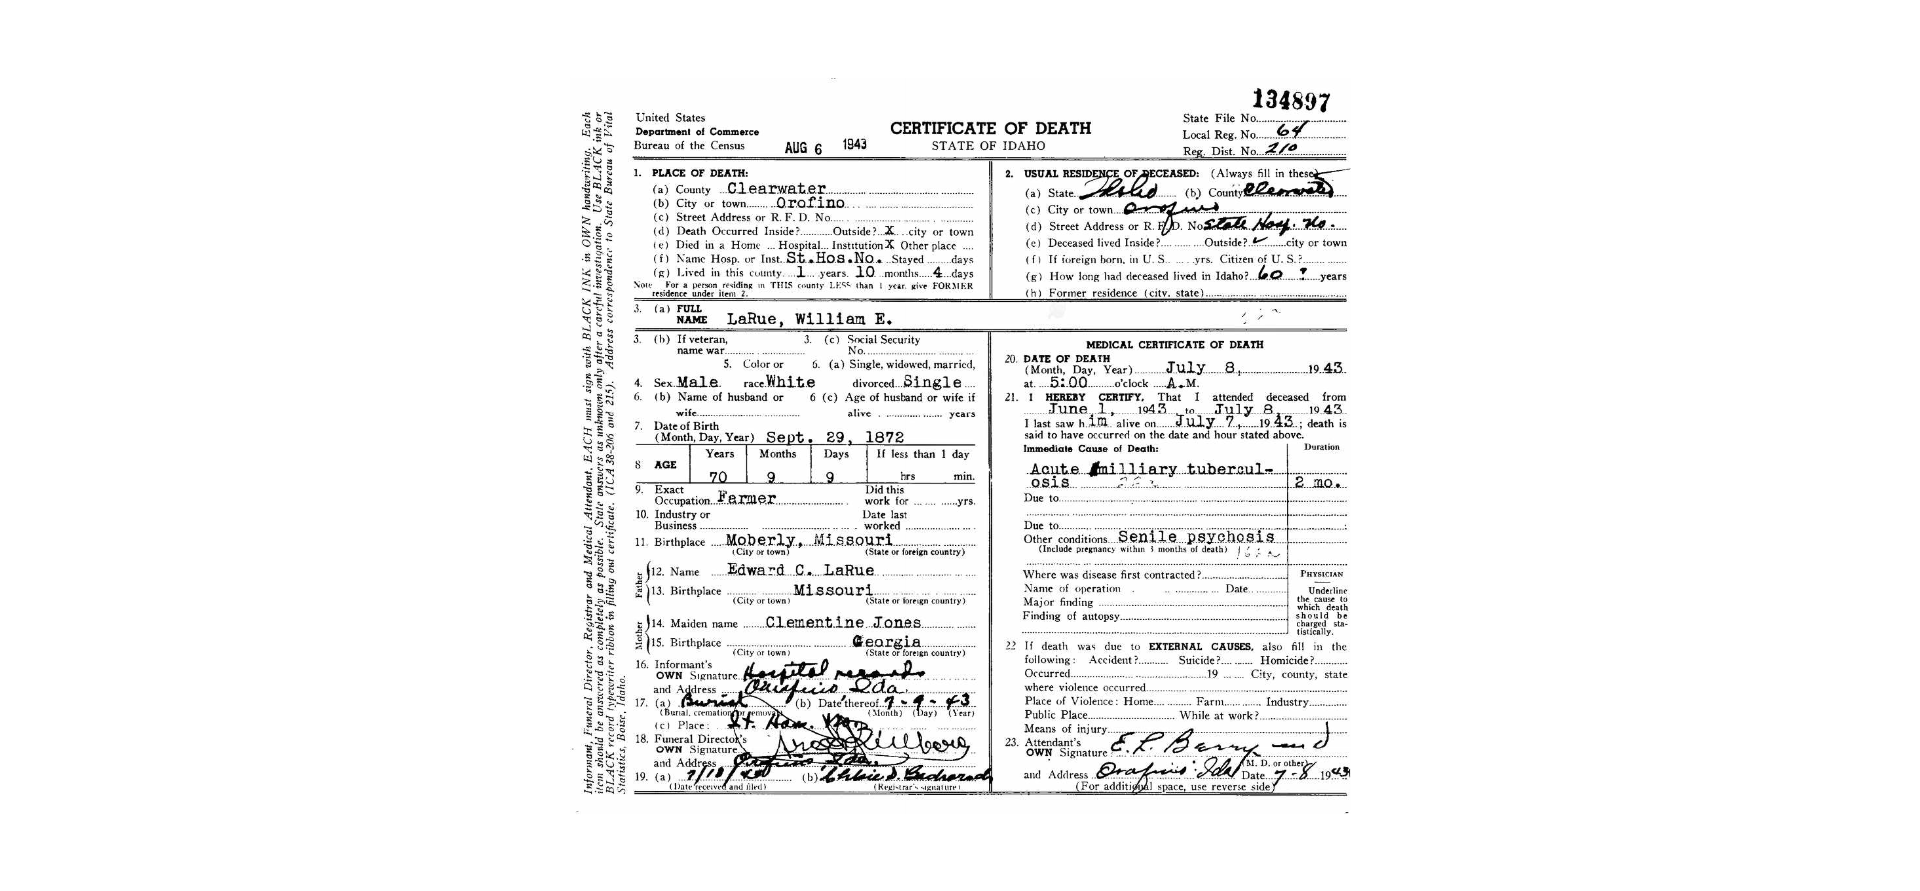 134897
United States
Department of Commerce
Bureau of the Census
AUG 6 1943
CERTIFICATE OF DEATH
STATE OF IDAHO
State File No.
Local Reg. No. 64
Reg. Dist. No. 210
Informant, Funeral Director, Registrar and Medical Attendant, EACH must sign with BLACK INK in OWN handwriting. Each
item should be answered as completely as possible. State answers as unknown only after a careful investigation. Use BLACK ink or
BLACK record typewriter ribbon in filling out certificate. (ICA 38-206 and 215). Address correspondence to State Bureau of Vital
Statistics, Boise, Idaho.
1. PLACE OF DEATH:
(a) County Clearwater
(b) City or town Orofino
(c) Street Address or R. F. D. No.
(d) Death Occurred Inside? Outside? X city or town
(e) Died in a Home Hospital Institution X Other place
(f) Name Hosp. or Inst. St.Hos.No. Stayed days
(g) Lived in this county 1 years. 10 months 4 days
Note For a person residing in THIS county LESS than 1 year, give FORMER
residence under item 2.
2. USUAL RESIDENCE OF DECEASED: (Always fill in these)
(a) State Idaho (b) County Clearwater
(c) City or town Orofino
(d) Street Address or R. F. D. No State Hosp. No.
(e) Deceased lived Inside? Outside? ✓ city or town
(f) If foreign born, in U. S. yrs. Citizen of U. S.?
(g) How long had deceased lived in Idaho? 60 ? years
(h) Former residence (city, state)
3. (a) FULL
NAME LaRue, William E.
3. (b) If veteran,
name war
3. (c) Social Security
No.
4. Sex Male
5. Color or
race White
6. (a) Single, widowed, married,
divorced Single
6. (b) Name of husband or
wife
6 (c) Age of husband or wife if
alive years
7. Date of Birth
(Month, Day, Year) Sept. 29, 1872
8 AGE
Years Months Days If less than 1 day
70 9 9 hrs min.
9. Exact
Occupation Farmer
Did this
work for yrs.
10. Industry or
Business
Date last
worked
11. Birthplace Moberly, Missouri
(City or town) (State or foreign country)
Father
12. Name Edward C. LaRue
13. Birthplace Missouri
(City or town) (State or foreign country)
Mother
14. Maiden name Clementine Jones
15. Birthplace Georgia
(City or town) (State or foreign country)
16. Informant's
OWN Signature Hospital records
and Address Orofino Ida.
17. (a) Burial (b) Date thereof 7-9-43
(Burial, cremation or removal) (Month) (Day) (Year)
(c) Place:
18. Funeral Director's
OWN Signature
and Address Orofino Ida.
19. (a) 7/10/ (b)
(Date received and filed) (Registrar's signature)
MEDICAL CERTIFICATE OF DEATH
20. DATE OF DEATH
(Month, Day, Year) July 8, 19 43
at 5:00 o'clock A.M.
21. I HEREBY CERTIFY, That I attended deceased from
June 1, 1943 to July 8, 19 43
I last saw h im alive on July 7, 19 43; death is
said to have occurred on the date and hour stated above.
Immediate Cause of Death: Duration
Acute milliary tubercul-
osis 2 mo.
Due to
Due to
Other conditions Senile psychosis
(Include pregnancy within 3 months of death)
Where was disease first contracted?
Name of operation Date
Major finding
Finding of autopsy
PHYSICIAN
Underline
the cause to
which death
should be
charged sta-
tistically.
22 If death was due to EXTERNAL CAUSES, also fill in the
following: Accident? Suicide? Homicide?
Occurred 19 City, county, state
where violence occurred
Place of Violence: Home Farm Industry
Public Place While at work?
Means of injury
23. Attendant's
OWN Signature E. L. Berry md
(M. D. or other)
and Address Orofino Ida Date 7-8 1943
(For additional space, use reverse side)